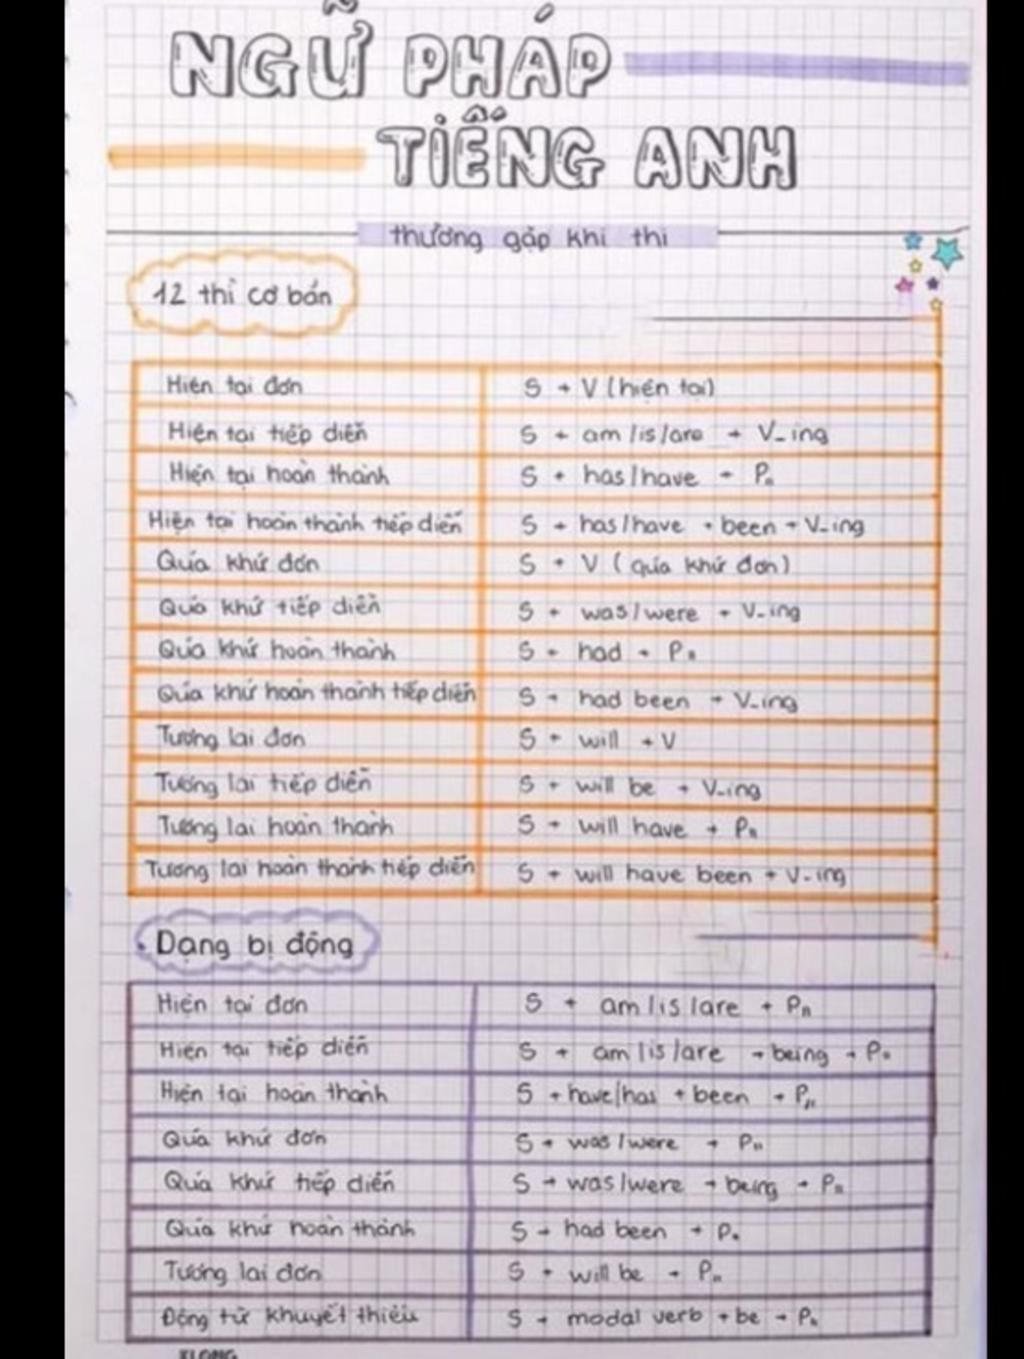 NGỮ PHÁP
TIẾNG ANH
thường gặp khi thi
12 thì cơ bản
Hiện tại đơn S + V (hiện tại)
Hiện tại tiếp diễn S + am/is/are + V-ing
Hiện tại hoàn thành S + has/have + Pп
Hiện tại hoàn thành tiếp diễn S + has/have + been + V-ing
Qúa khứ đơn S + V (qúa khứ đơn)
Qúa khứ tiếp diễn S + was/were + V-ing
Qúa khứ hoàn thành S + had + Pп
Qúa khứ hoàn thành tiếp diễn S + had been + V-ing
Tương lai đơn S + will + V
Tương lai tiếp diễn S + will be + V-ing
Tương lai hoàn thành S + will have + Pп
Tương lai hoàn thành tiếp diễn S + will have been + V-ing
Dạng bị động
Hiện tại đơn S + am/is/are + Pп
Hiện tại tiếp diễn S + am/is/are + being + Pп
Hiện tại hoàn thành S + have/has + been + Pп
Qúa khứ đơn S + was/were + Pп
Qúa khứ tiếp diễn S + was/were + being + Pп
Qúa khứ hoàn thành S + had been + Pп
Tương lai đơn S + will be + Pп
Động từ khuyết thiếu S + modal verb + be + Pп
KLONG